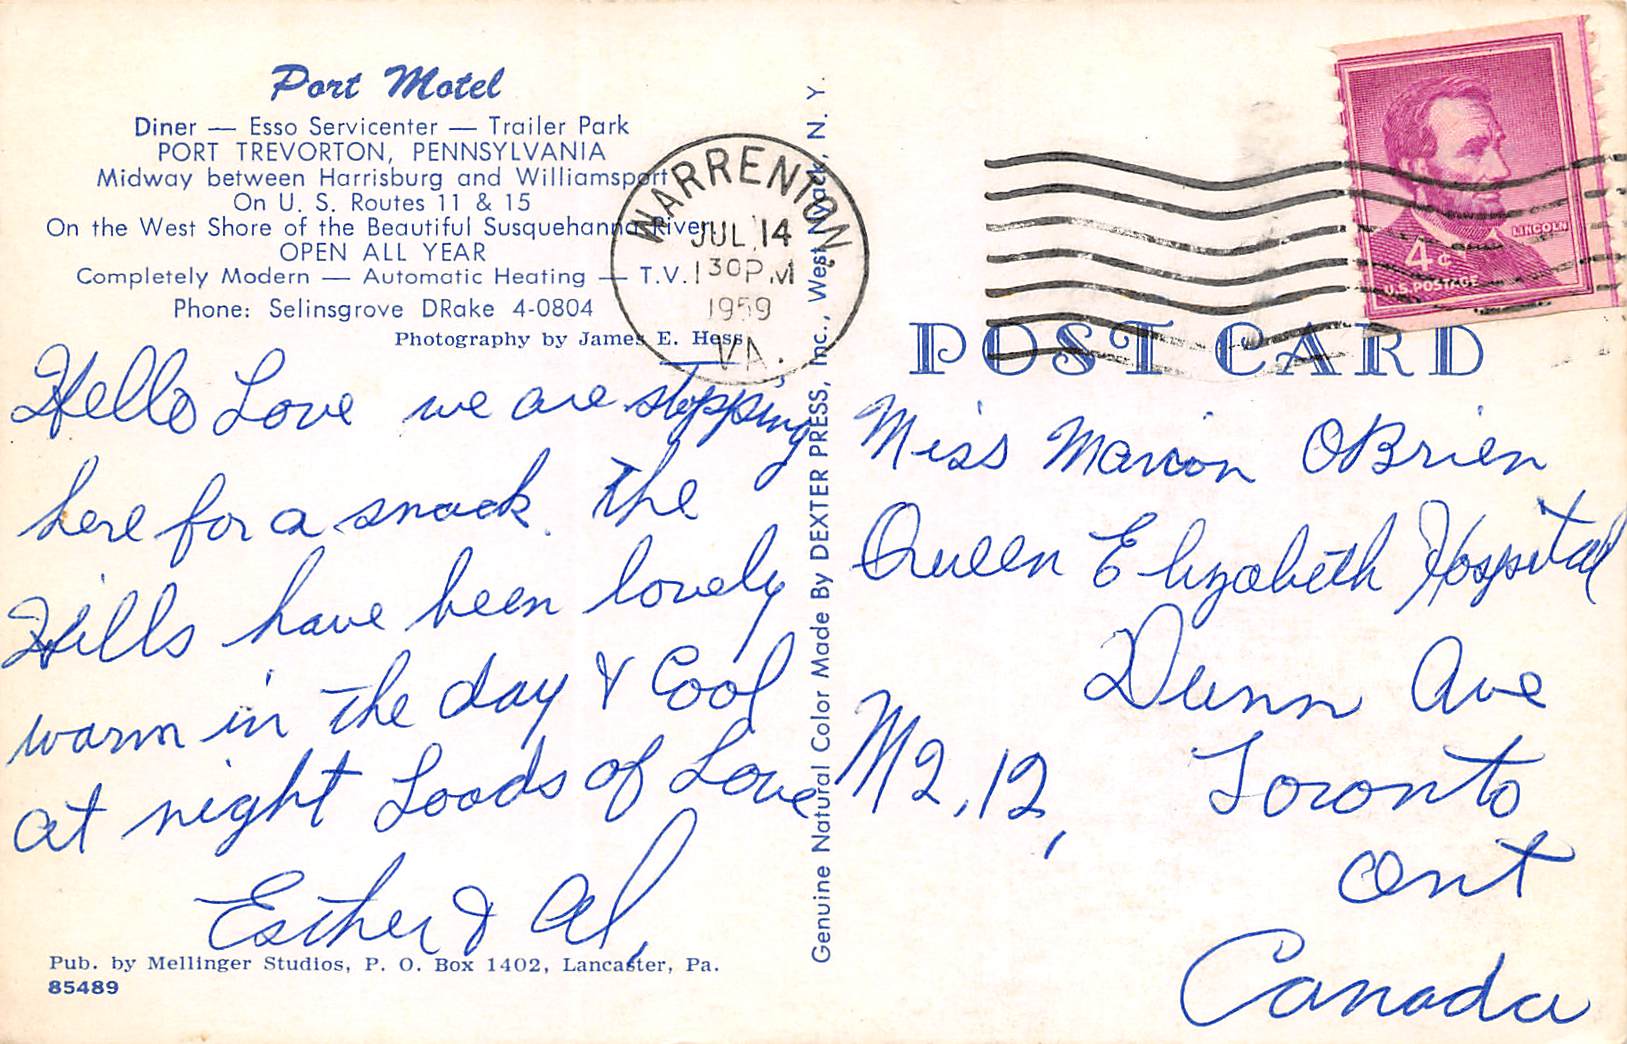 Port Motel
Diner — Esso Servicenter — Trailer Park
PORT TREVORTON, PENNSYLVANIA
Midway between Harrisburg and Williamsport
On U. S. Routes 11 & 15
On the West Shore of the Beautiful Susquehanna River
OPEN ALL YEAR
Completely Modern — Automatic Heating — T.V.
Phone: Selinsgrove DRake 4-0804
Photography by James E. Hess
Hello Love we are stopping
here for a snack. The
Hills have been lovely
warm in the day & Cool
at night Loads of Love
Esther & Al,
Pub. by Mellinger Studios, P. O. Box 1402, Lancaster, Pa.
85489
Genuine Natural Color Made By DEXTER PRESS, Inc., West Nyack, N. Y.
WARRENTON,
JUL 14
1 30 PM
1959
VA.
LINCOLN
4¢
U.S. POSTAGE
POST CARD
Miss Marion OBrien
Queen Elizabeth Hospital
Dunn Ave
M2,12, Toronto
Ont
Canada